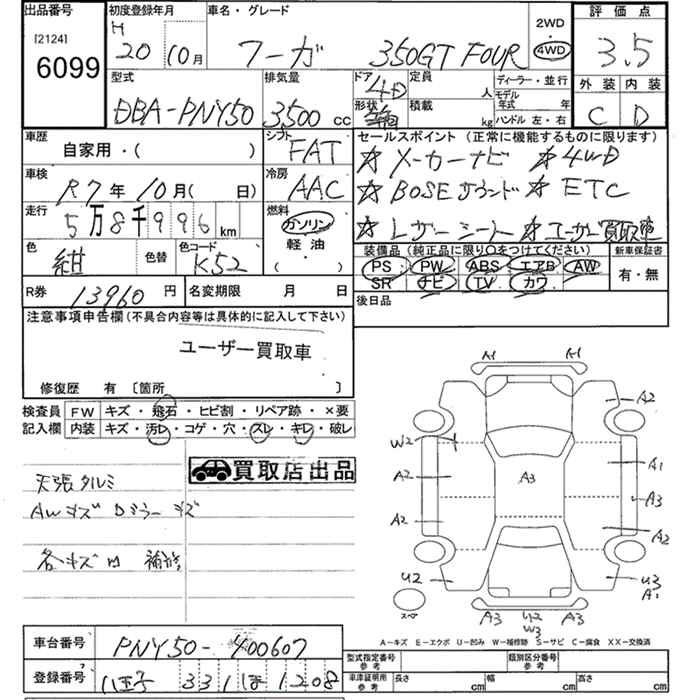 出品番号
[2124]
6099
初度登録年月
H
20 10月
車名・グレード
フーガ 350GT FOUR
2WD
・
4WD
評価点
3.5
外装 内装
C D
型式
DBA-PNY50
排気量
3,500 cc
ドア 4D
形状
定員 人
積載 kg
ディーラー・並行
モデル年式 年
ハンドル 左・右
車歴
自家用・( )
シフト
FAT
車検
R7年10月( 日)
冷房
AAC
走行
5万8千996km
燃料
ガソリン
軽油
( )
色
紺
色替
色コード
K52
セールスポイント (正常に機能するものに限ります)
☆メーカーナビ ☆4WD
☆BOSEサウンド ☆ETC
☆レザーシート ☆ユーザー買取車
装備品 (純正品に限り○をつけてください)
PS PW ABS エアB AW
SR ナビ TV カワ
新車保証書
有・無
後日品
R券 13960円
名変期限 月 日
注意事項申告欄 (不具合内容等は具体的に記入して下さい)
ユーザー買取車
修復歴 有 〔箇所 〕
検査員記入欄
FW キズ・飛石・ヒビ割・リペア跡・×要
内装 キズ・汚レ・コゲ・穴・スレ・キレ・破レ
買取店出品
天張タルミ
AWキズ Dミラーキズ
各キズ凹 補修
A1 A1
A2
W2
A2
A1
A3
A3
A2
A2
U2
U3
A1
A3 U2 A3
W3
スペア
A-キズ E-エクボ U-凹み W-補修跡 S-サビ C-腐食 XX-交換済
車台番号
PNY50-400607
登録番号
八王子 331 ほ 1208
型式指定番号 参考
類別区分番号 参考
車庫証明用 参考
長さ cm
幅 cm
高さ cm